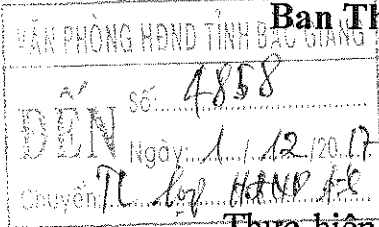 Ban Th
VĂN PHÒNG HĐND TỈNH BẮC GIANG
ĐẾN Số: 4858
Ngày: 1 / 12 /20 17
Chuyển: TL họp HĐND
Thực hiện